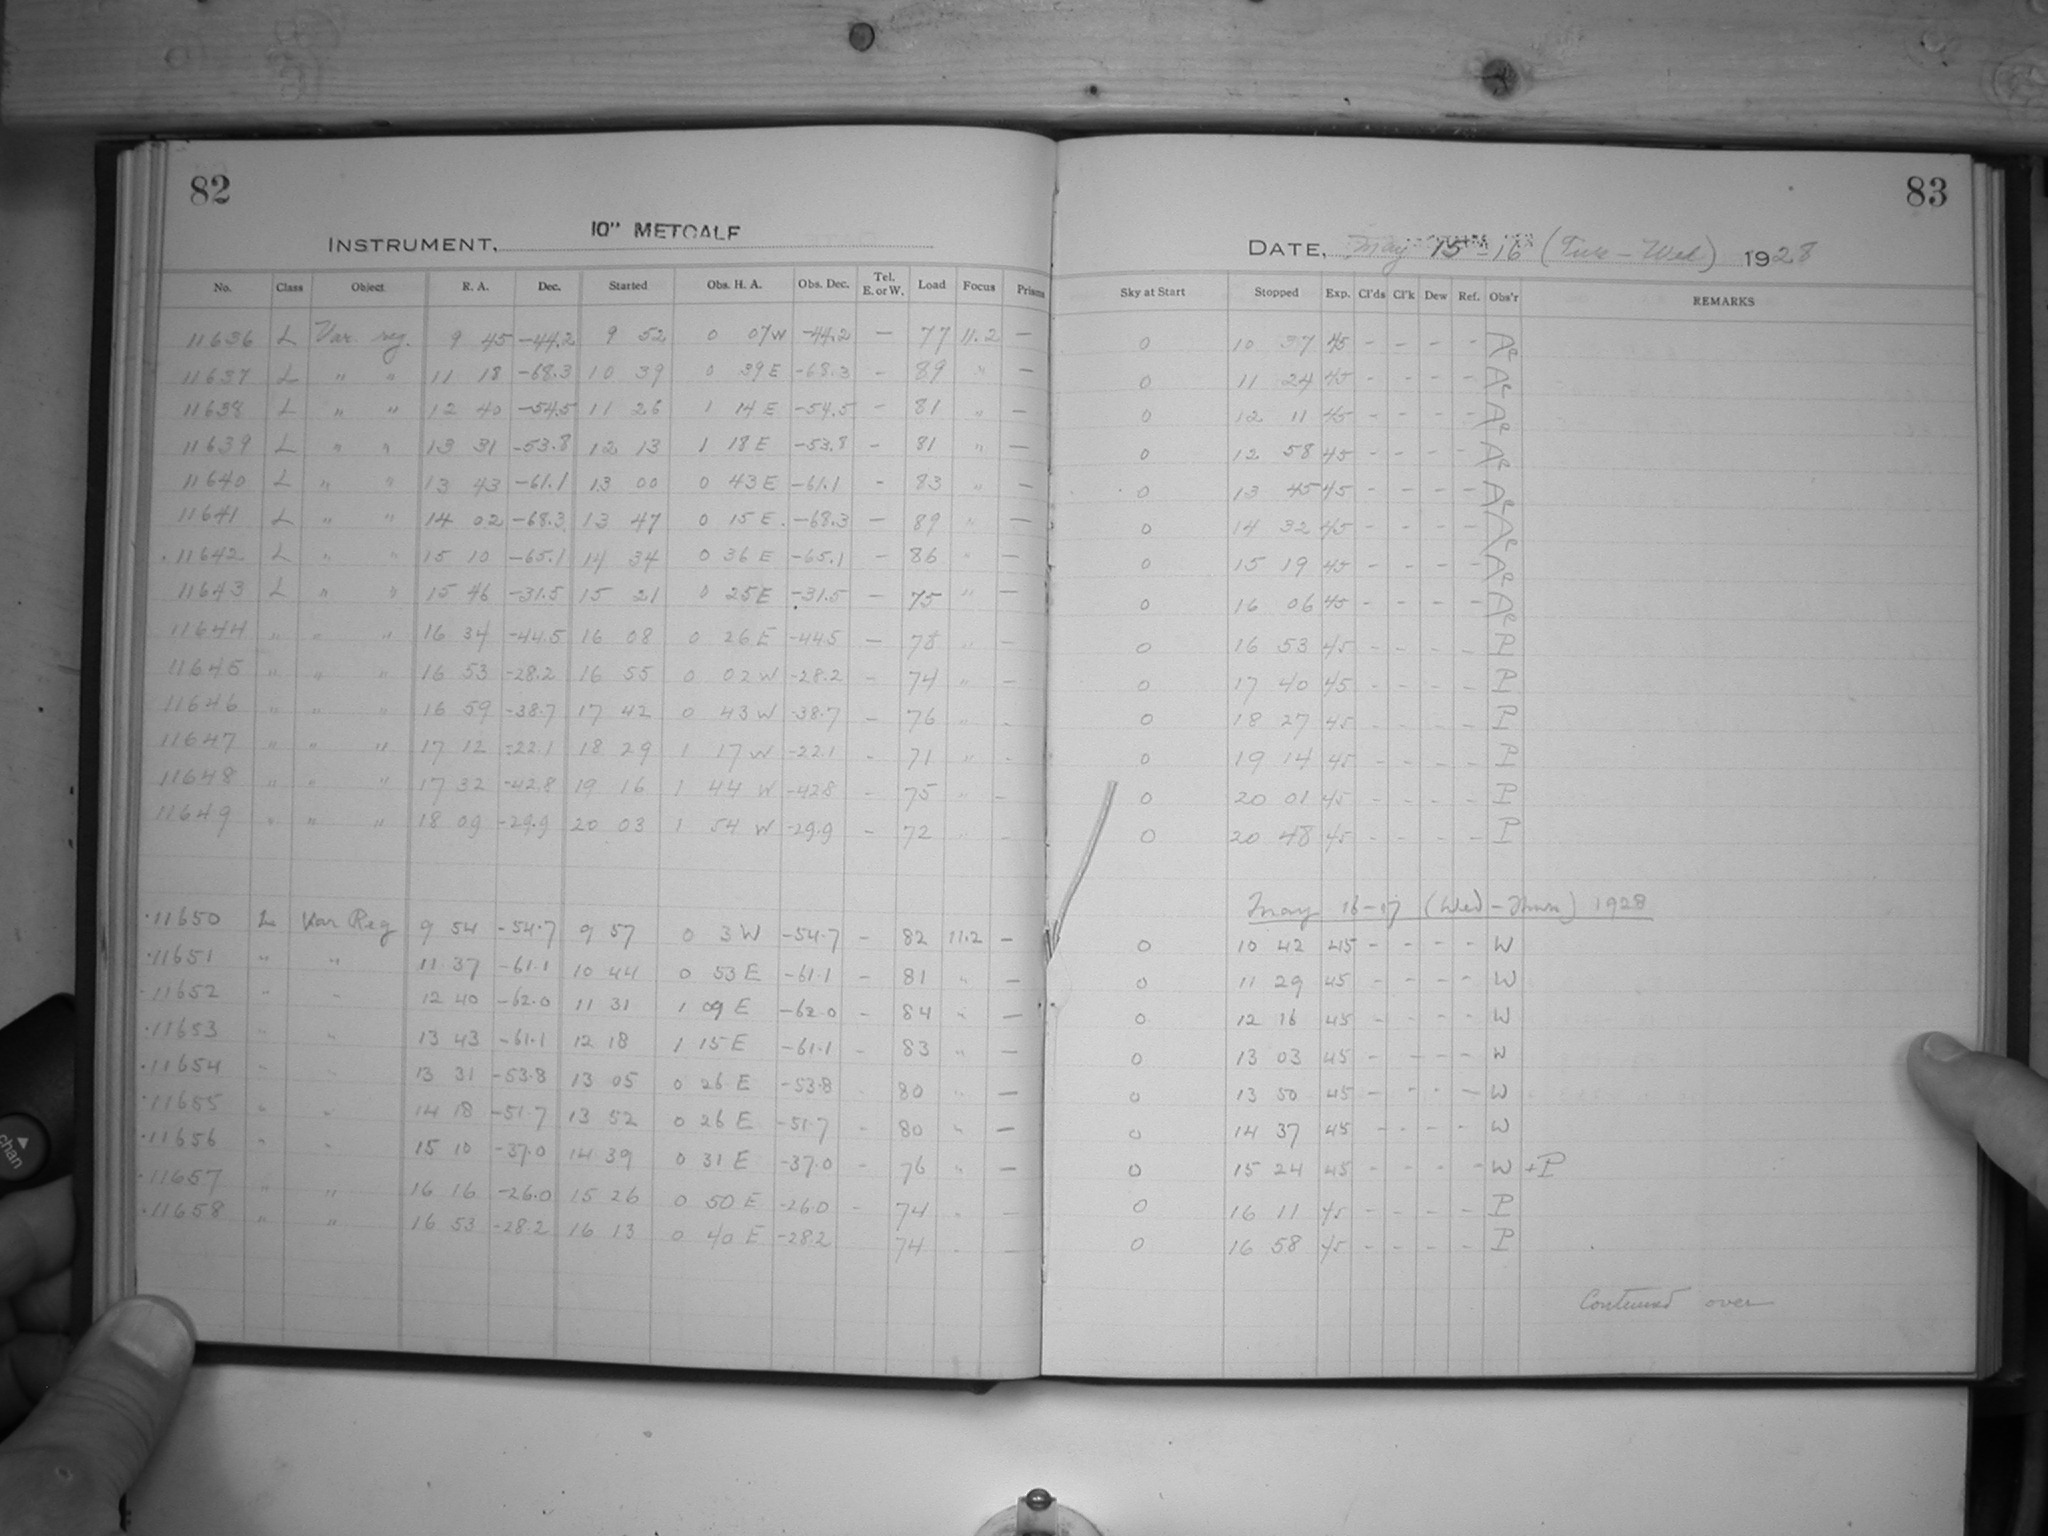 82
INSTRUMENT, 10" METCALF
No. Class Object R. A. Dec. Started Obs. H. A. Obs. Dec. Tel. E. or W. Load Focus Prisms
11636 L Var. reg. 9 45 -44.2 9 52 0 07 W -44.2 — 77 11.2 —
11637 L " " 11 18 -68.3 10 39 0 39 E -68.3 - 89 " —
11638 L " " 12 40 -54.5 11 26 1 14 E -54.5 - 81 " —
11639 L " " 13 31 -53.8 12 13 1 18 E -53.8 - 81 " —
11640 L " " 13 43 -61.1 13 00 0 43 E -61.1 - 83 " —
11641 L " " 14 02 -68.3 13 47 0 15 E -68.3 — 89 " —
11642 L " " 15 10 -65.1 14 34 0 36 E -65.1 — 86 " —
11643 L " " 15 46 -31.5 15 21 0 25 E -31.5 — 75 " —
11644 " " " 16 34 -44.5 16 08 0 26 E -44.5 — 78 " —
11645 " " " 16 53 -28.2 16 55 0 02 W -28.2 - 74 " —
11646 " " " 16 59 -38.7 17 42 0 43 W -38.7 - 76 " -
11647 " " " 17 12 -22.1 18 29 1 17 W -22.1 - 71 " -
11648 " " " 17 32 -42.8 19 16 1 44 W -42.8 - 75 " —
11649 " " " 18 09 -29.9 20 03 1 54 W -29.9 - 72 " -
11650 L Var Reg 9 54 -54.7 9 57 0 3 W -54.7 - 82 11.2 —
11651 " " 11 37 -61.1 10 44 0 53 E -61.1 - 81 " —
11652 " " 12 40 -62.0 11 31 1 09 E -62.0 - 84 " —
11653 " " 13 43 -61.1 12 18 1 15 E -61.1 - 83 " —
11654 " " 13 31 -53.8 13 05 0 26 E -53.8 - 80 " —
11655 " " 14 18 -51.7 13 52 0 26 E -51.7 - 80 " —
11656 " " 15 10 -37.0 14 39 0 31 E -37.0 - 76 " —
11657 " " 16 16 -26.0 15 26 0 50 E -26.0 - 74 " —
11658 " " 16 53 -28.2 16 13 0 40 E -28.2 74 " —
83
DATE, May 15-16 (Tues-Wed) 1928
Sky at Start Stopped Exp. Cl'ds Cl'k Dew Ref. Obs'r REMARKS
0 10 37 45 - - - -
0 11 24 45 - - - -
0 12 11 45 - - - -
0 12 58 45 - - - -
0 13 45 45 - - - -
0 14 32 45 - - - -
0 15 19 45 - - - -
0 16 06 45 - - - -
0 16 53 45 - - - - P
0 17 40 45 - - - - P
0 18 27 45 - - - - P
0 19 14 45 - - - - P
0 20 01 45 - - - - P
0 20 48 45 - - - - P
May 16-17 (Wed-Thurs) 1928
0 10 42 45 - - - - W
0 11 29 45 - - - - W
0 12 16 45 - - - - W
0 13 03 45 - - - - W
0 13 50 45 - - - - W
0 14 37 45 - - - - W
0 15 24 45 - - - - W + P
0 16 11 45 - - - - P
0 16 58 45 - - - - P
Continued over
chan